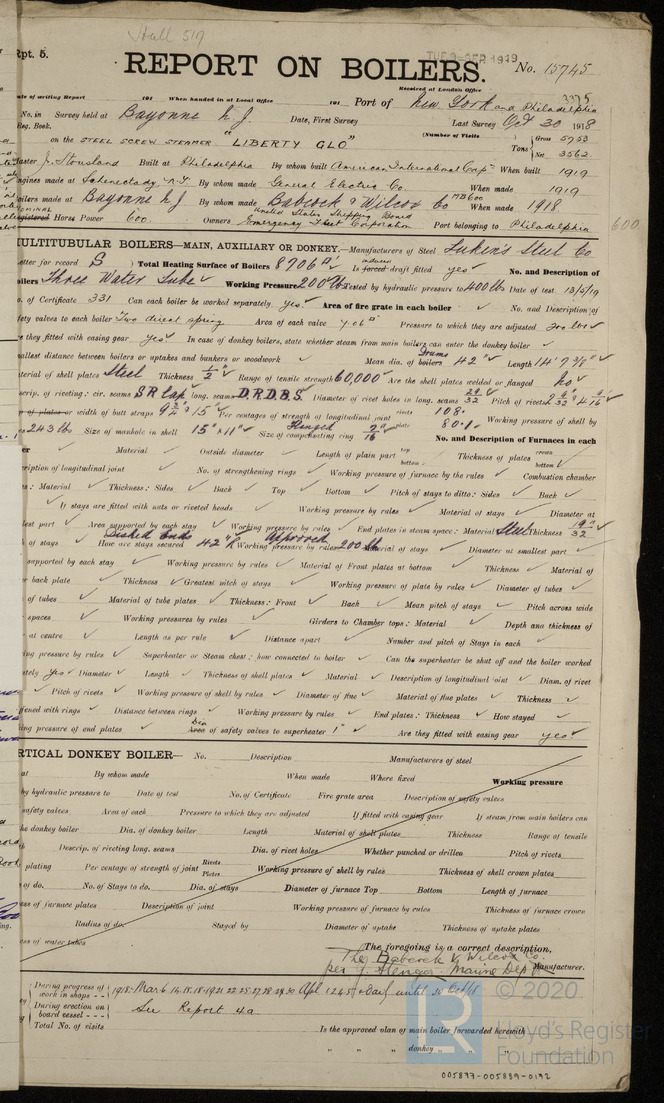 Hull 517
Rpt. 5.
REPORT ON BOILERS.
No. 15745
TUE 9 SEP 1919
Received at London Office
3375
Date of writing Report 191 When handed in at Local Office 191 Port of New York and Philadelphia
No. in Survey held at Bayonne N.J. Date, First Survey Last Survey Oct 30 1918
Reg. Book. (Number of Visits
on the STEEL SCREW STEAMER "LIBERTY GLO" Tons Gross 5753
Net 3562
Master J. Stousland Built at Philadelphia By whom built American International Corp When built 1919
Engines made at Schenectady, N.Y. By whom made General Electric Co. When made 1919
Boilers made at Bayonne N J By whom made Babcock & Wilcox Co When made 1918
Registered Horse Power 600. Owners United States Shipping Board Emergency Fleet Corporation Port belonging to Philadelphia
600
MULTITUBULAR BOILERS—MAIN, AUXILIARY OR DONKEY.—Manufacturers of Steel Lukens Steel Co
Letter for record S) Total Heating Surface of Boilers 8706 Is forced draft fitted yes No. and Description of
Boilers Three Water Tube Working Pressure 200 lbs Tested by hydraulic pressure to 400 lbs Date of test. 13/5/19
No. of Certificate 331 Can each boiler be worked separately yes. Area of fire grate in each boiler No. and Description of
safety valves to each boiler Two direct spring Area of each valve 7.06 Pressure to which they are adjusted 200 lbs
Are they fitted with easing gear yes In case of donkey boilers, state whether steam from main boilers can enter the donkey boiler
Smallest distance between boilers or uptakes and bunkers or woodwork Mean dia. of boilers Drums 42" Length 14' 7 3/8"
Material of shell plates Steel Thickness 1/2" Range of tensile strength 60,000 Are the shell plates welded or flanged No
Descrip. of riveting: cir. seams S R Lap long. seams D.R.D.B.S. Diameter of rivet holes in long. seams 29/32 Pitch of rivets
Lap of plates or width of butt straps 9 3/4" × 15" Per centages of strength of longitudinal joint rivets 108. plate 80.1 Working pressure of shell by
rules 243 lbs Size of manhole in shell 15" × 11" Size of compensating ring Flanged 7/16" No. and Description of Furnaces in each
boiler Material Outside diameter Length of plain part top bottom Thickness of plates crown bottom
Description of longitudinal joint No. of strengthening rings Working pressure of furnace by the rules Combustion chamber
plates: Material Thickness: Sides Back Top Bottom Pitch of stays to ditto: Sides Back
If stays are fitted with nuts or riveted heads Working pressure by rules Material of stays Diameter at
smallest part Area supported by each stay Working pressure by rules End plates in steam space: Material Steel Thickness 19/32"
Pitch of stays How are stays secured Dished Ends 42" R Working pressure by rules Approved 200 lbs Material of stays Diameter at smallest part
Area supported by each stay Working pressure by rules Material of Front plates at bottom Thickness Material of
Lower back plate Thickness Greatest pitch of stays Working pressure of plate by rules Diameter of tubes
Pitch of tubes Material of tube plates Thickness: Front Back Mean pitch of stays Pitch across wide
water spaces Working pressures by rules Girders to Chamber tops: Material Depth and thickness of
girder at centre Length as per rule Distance apart Number and pitch of Stays in each
Working pressure by rules Superheater or Steam chest; how connected to boiler Can the superheater be shut off and the boiler worked
separately yes Diameter Length Thickness of shell plates Material Description of longitudinal joint Diam. of rivet
holes Pitch of rivets Working pressure of shell by rules Diameter of flue Material of flue plates Thickness
If stiffened with rings Distance between rings Working pressure by rules End plates: Thickness How stayed
Working pressure of end plates Dia Area of safety valves to superheater 1" Are they fitted with easing gear yes
VERTICAL DONKEY BOILER— No. Description Manufacturers of steel
Made at By whom made When made Where fixed Working pressure
tested by hydraulic pressure to Date of test No. of Certificate Fire grate area Description of safety valves
No. of safety valves Area of each Pressure to which they are adjusted If fitted with easing gear If steam from main boilers can
enter the donkey boiler Dia. of donkey boiler Length Material of shell plates Thickness Range of tensile
strength Descrip. of riveting long. seams Dia. of rivet holes Whether punched or drilled Pitch of rivets
Lap of plating Per centage of strength of joint Rivets Plates Working pressure of shell by rules Thickness of shell crown plates
Radius of do. No. of Stays to do. Dia. of stays Diameter of furnace Top Bottom Length of furnace
Thickness of furnace plates Description of joint Working pressure of furnace by rules Thickness of furnace crown
plates Radius of do. Stayed by Diameter of uptake Thickness of uptake plates
Thickness of water tubes
The foregoing is a correct description,
The Babcock & Wilcox Co.
Marine Dept. Manufacturer.
During progress of work in shops - - 1918: Mar 6 14.15.18.19.21 22.25.27.28 29.30 Apl 1 2 4 5 & daily until 30 Oct/18
During erection on board vessel - - - See Report 4a
Total No. of visits
Is the approved plan of main boiler forwarded herewith
" " " donkey " "
© 2020
LR
Lloyd's Register
Foundation
005877-005889-0192